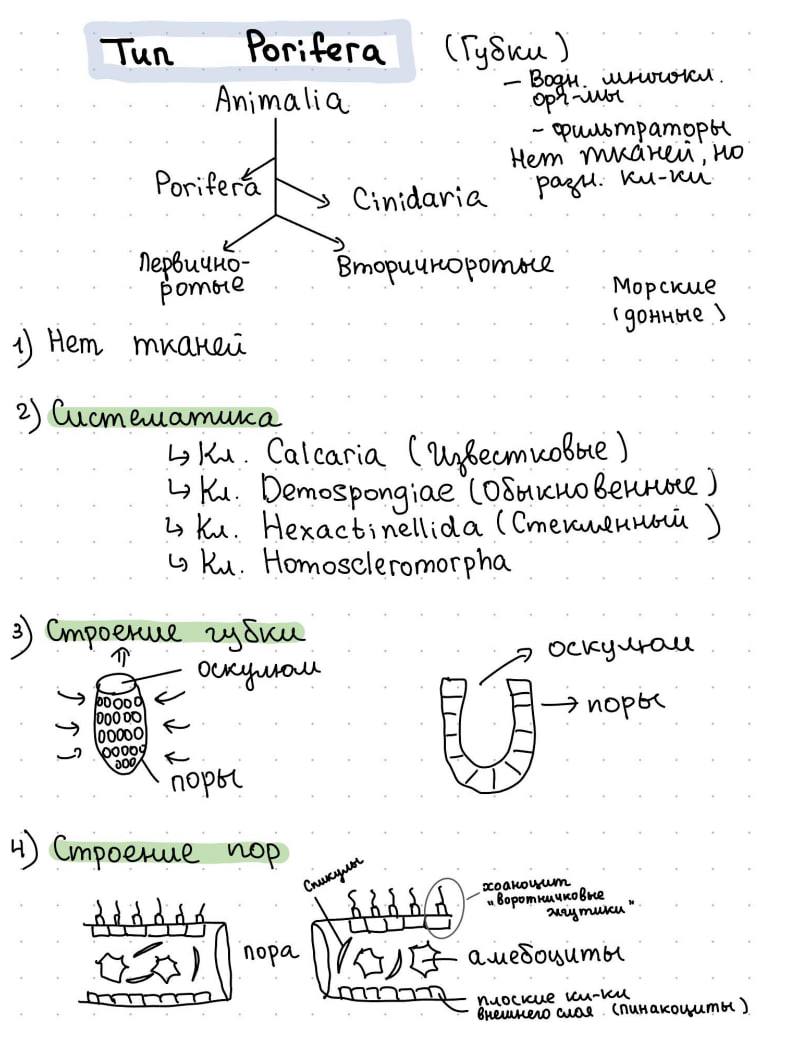 Тип Porifera (Губки)
– Водн. многокл.
орг-мы
– фильтраторы
Нет тканей, но
разн. кл-ки
Animalia
Porifera
Cinidaria
Первично-
ротые
Вторичноротые
Морские
(донные)
1) Нет тканей
2) Систематика
↳ Кл. Calcaria (Известковые)
↳ Кл. Demospongiae (Обыкновенные)
↳ Кл. Hexactinellida (Стеклянный)
↳ Кл. Homoscleromorpha
3) Строение губки
оскулюм
поры
оскулюм
поры
4) Строение пор
пора
Спикулы
хоаноцит
"воротничковые
жгутики"
амебоциты
плоские кл-ки
внешнего слоя (пинакоциты)